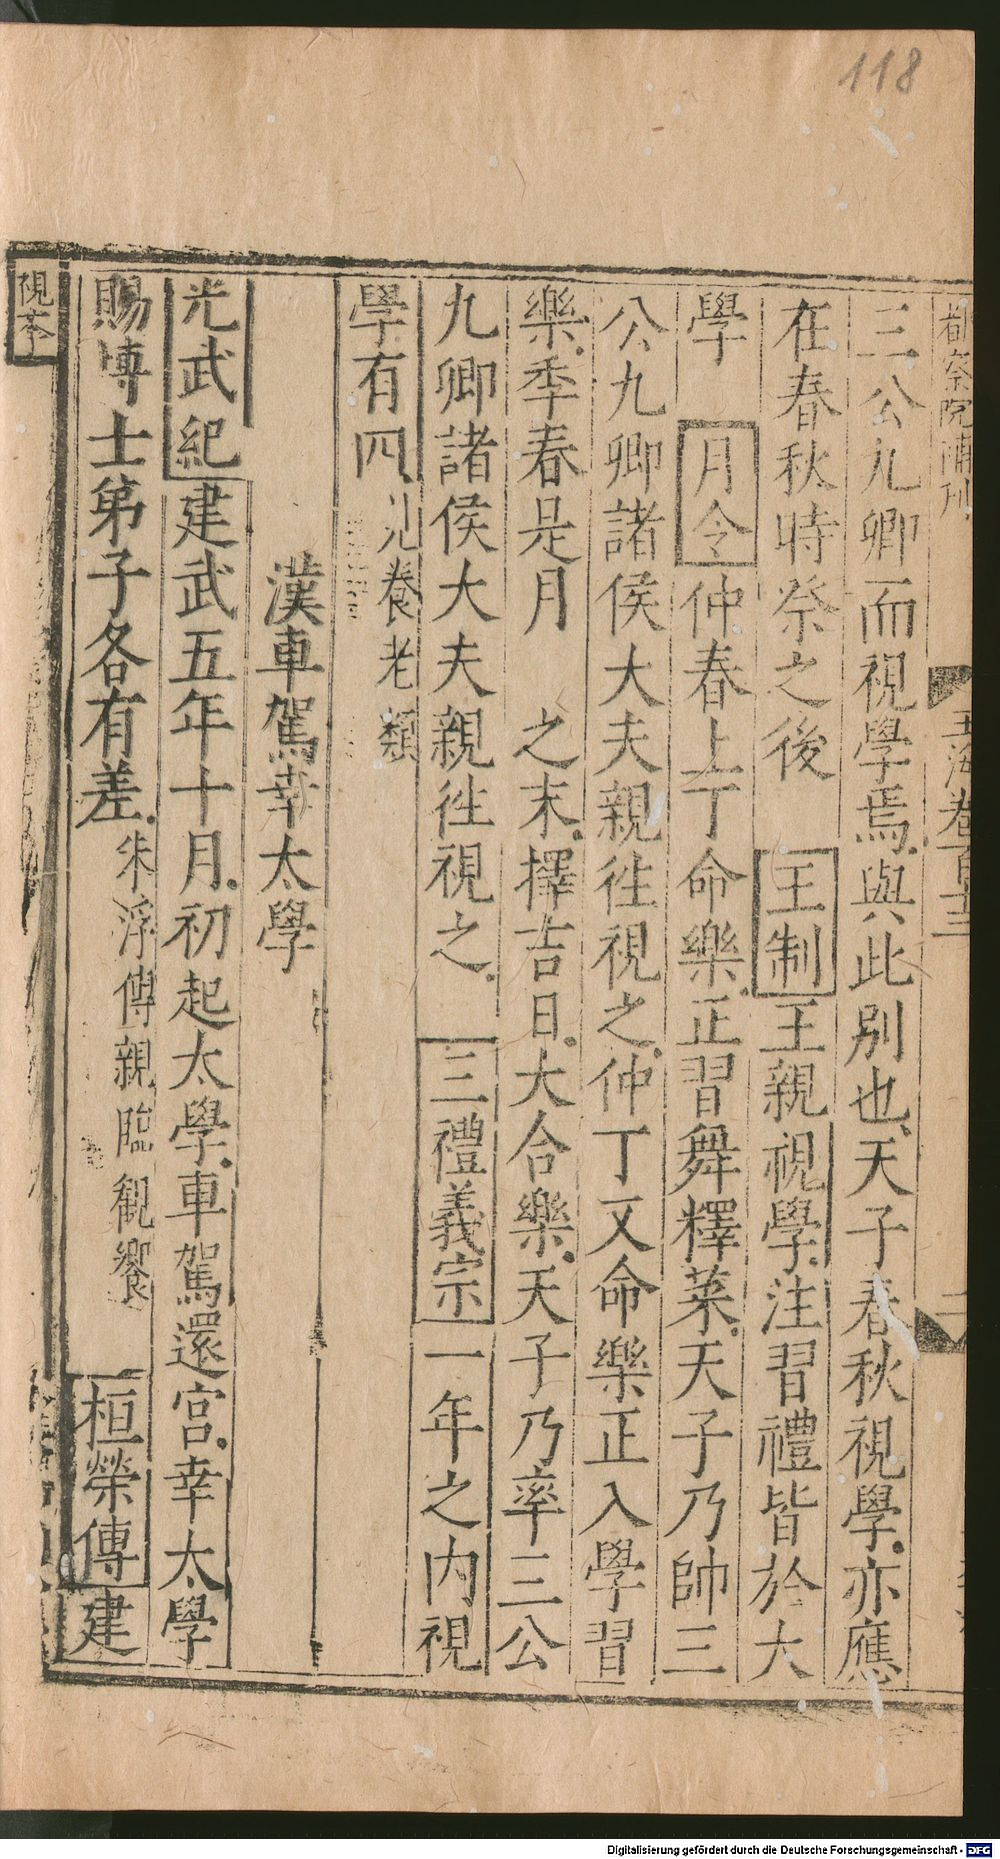 118
都察院補刊
玉海卷一百十三
二
三公九卿而視學焉與此別也天子春秋視學亦應
在春秋時祭之後 王制王親視學注習禮皆於大
學 月令仲春上丁命樂正習舞釋菜天子乃帥三
公九卿諸侯大夫親往視之仲丁又命樂正入學習
樂季春是月 之末擇吉日大合樂天子乃率三公
九卿諸侯大夫親往視之 三禮義宗一年之內視
學有四 養老類
漢車駕幸太學
光武紀建武五年十月初起太學車駕還宮幸太學
賜博士弟子各有差朱浮傳親臨觀饗 桓榮傳建
視
Digitalisierung gefördert durch die Deutsche Forschungsgemeinschaft - DFG